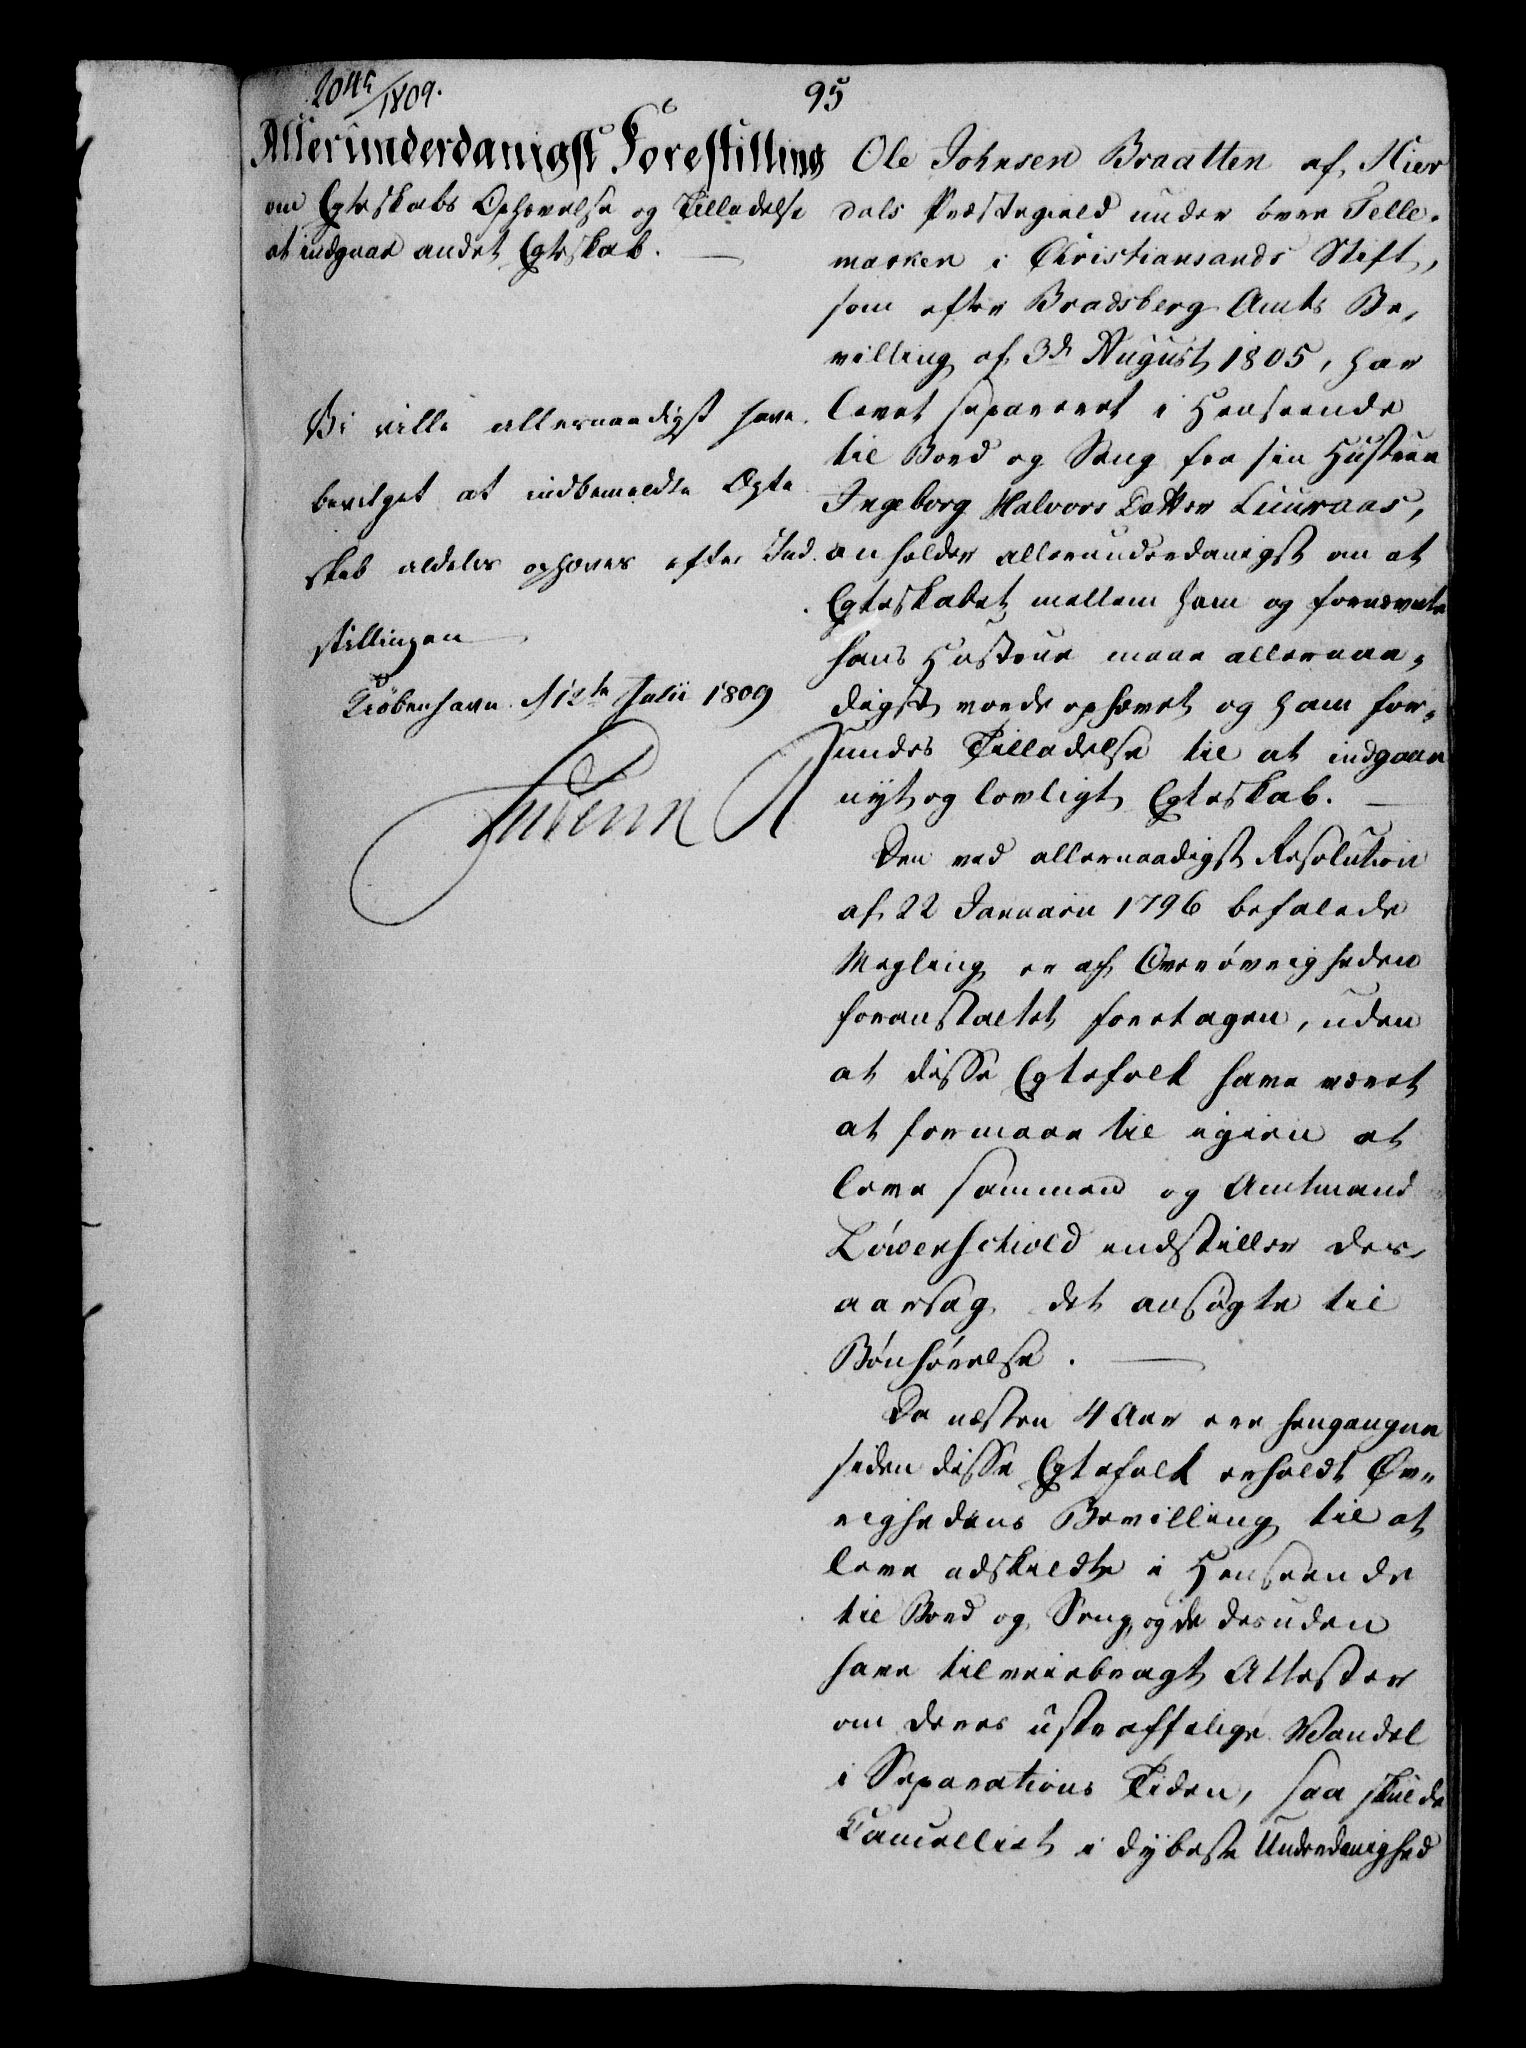 2045/1809.
95
Allerunderdanigst Forestilling
om Egteskabs Ophævelse og Tilladelse
at indgaae andet Egteskab.
Vi ville allernaadigst have
bevilget at indbemeldte Ægte
skab aldeles ophæves efter Ind
stillingen
Kiöbenhavn d 12te Julii 1809
Frederik R
Ole Johnsen Braatten af Hier
dals Præstegield under övre Telle,
marken i Christiansands Stift,
som efter Bradsberg Amts Be,
villing af 3de August 1805, har
levet separeret i Henseende
til Bord og Seng fra sin Hustrue
Ingeborg Halvors Datter Luuraas,
anholder allerunderdanigst om at
Egteskabet mellem ham og fornævnte
hans Hustrue maae allernaa,
digst vorde ophævet og ham for,
undes Tilladelse til at indgaae
nyt og lovligt Egteskab.
Den ved allernaadigst Resolution
af 22 Januarii 1796 befalede
Megling er af Overövrigheden
foranstaltet foretagen, uden
at disse Egtefolk have været
at formaae til igien at
leve sammen og Amtmand
Löwenschiold indstiller der,
aarsag det ansögte til
Bönhörelse.
Da næsten 4 Aar ere hengangne
siden disse Egtefolk erholdt Øv,
righedens Bevilling til at
leve adskildte i Henseende
til Bord og Seng, og de desuden
have tilveiebragt Attester
om deres ustraffelige Vandel
i Separations Tiden, saa skulde
Cancelliet i dybeste Underdanighed